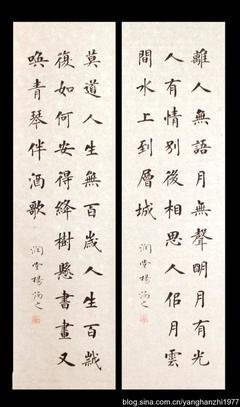 離人無語月無聲明月有光
人有情別後相思人佀月雲
間水上到層城
楊之
莫道人生無百歲人生百歲
復如何安得絳樹懸書畫又
喚青琴伴酒歌
楊之
blog.sina.com.cn/yanghanzhi1977